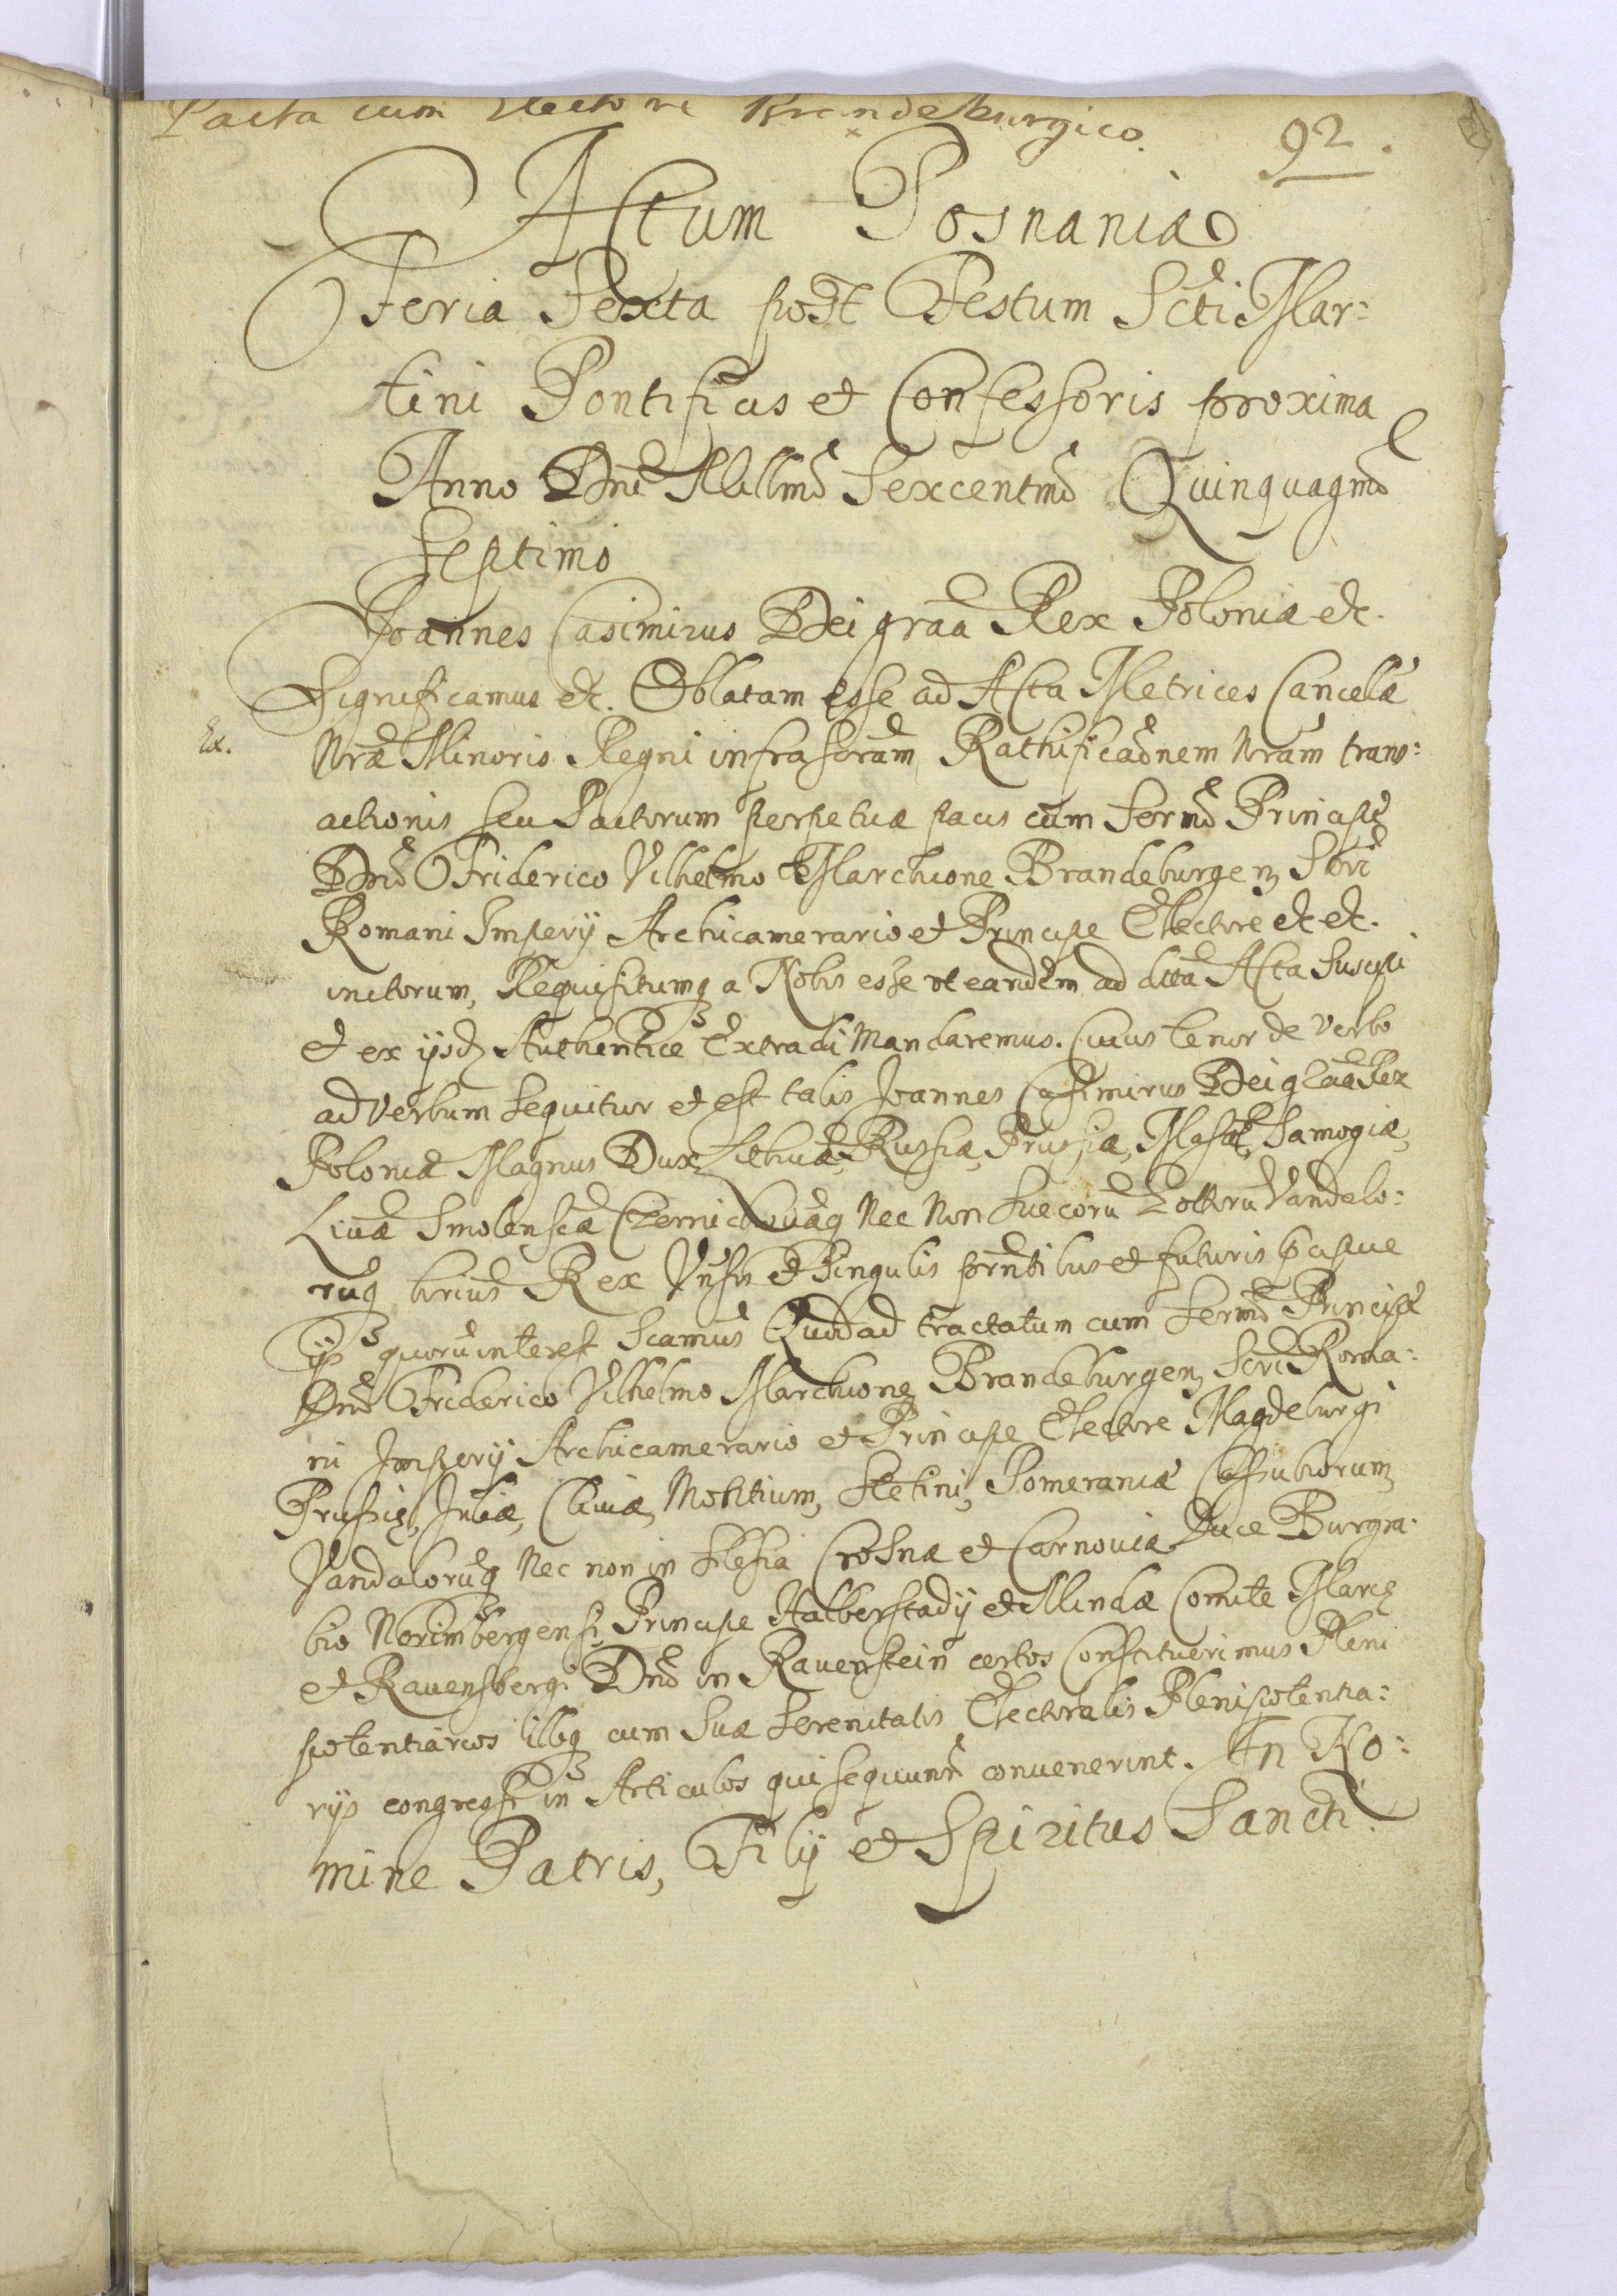 Pacta cum Electore Brandeburgico.
92.
Actum Posnaniæ
Feria Sexta post Festum Scti Mar:
tini Pontificis et Confessoris proxima
Anno Dni Millmo Sexcentmo Quinquagmo
Septimo
Joannes Casimirus Dei graa Rex Poloniæ etc.
Significamus etc. Oblatam esse ad Acta Metrices Cancellæ
Ex.
Nræ Minoris Regni infrascram Rathificaonem Nram trans:
actionis seu Pactorum perpetuæ pacis cum Sermo Principe
Dno Friderico Vilhelmo Marchione Brandeburgen Scri
Romani Impery Archicamerario et Principe Electore etc etc.
initorum, Requisitumq a Nobis esse ut eandem ad dicta Acta suscipi
et ex ijsd Authentice Extradi Mandaremus. Cuius tenor de verbo
ad verbum sequitur et est talis Joannes Casimirus Dei graa Rex
Poloniæ Magnus Dux Lithuæ, Russiæ, Prussiæ, Masæ, Samogiæ,
Livæ Smolensciæ Czernichouæq Nec Non Suecoru Gottoru Vandalo:
ruq hrius Rex Vnisis et Singulis prntibus et futuris
ijs quoru interest Quod ad tractatum cum Sermo Principe
Dno Friderico Vilhelmo Marchione Brandeburgen, Scri Roma:
ni Impery Archicamerario et Principe Electore Magdeburgi
Prussiæ, Juliæ, Cliviæ, Montium, Stetini, Pomeraniæ Cassubiorum,
Vandaloruq Nec non in Silesia Crosnæ et Carnoviæ Duce Burgra:
bio Norimbergensi, Principe Halberstadij et Mindæ Comite Marcæ
et Ravensberg. Dno in Ravenstein certos Constituerimus Pleni
potentiarios illiq cum Suæ Serenitatis Electoralis Plenipotentia:
rijs congressi in Articulos qui sequunr convenerint. In No:
mine Patris, Filij et Spiritus Sancti.